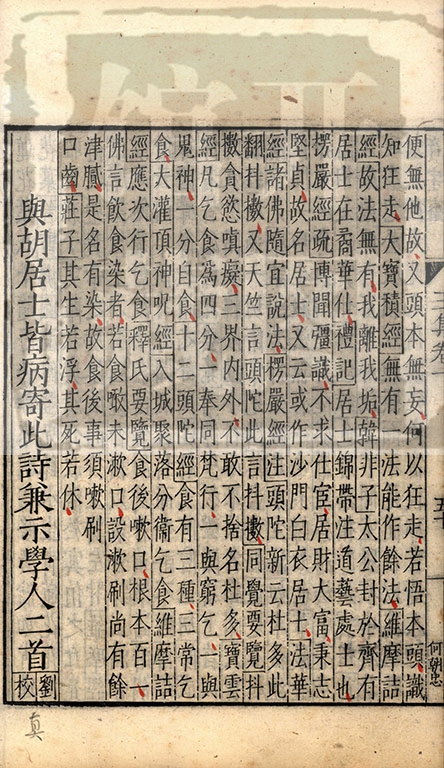 便無他故又頭本無妄何以狂走若悟本頭識
知狂走大寶積經無有一法能作餘法維摩詰
經故法無有我離我垢韓非子太公封於齊有
居士在裔華仕禮記居士錦帶注道藝處士也
楞嚴經疏博聞彊識不求仕宦居財大富秉志
堅貞故名居士又云或作沙門白衣居士法華
經諸佛隨宜說法楞嚴經注頭陀新云杜多此
翻抖擻又天竺言頭陀此言抖擻同覺要覽抖
擻貪慾嗔癡三界内外不敢不捨名杜多寶雲
經凡乞食為四分一奉同梵行一與窮乞一與
鬼神一分自食十二頭陀經食有三種三常乞
食大灌頂神呪經入城聚落分衞乞食維摩詰
經應次行乞食釋氏要覽食後嗽口根本百一
佛言飲食染者若食噉未漱口設漱刷尚有餘
津膩是名有染故食後事須嗽刷
口齒莊子其生若浮其死若休
與胡居士皆病寄此詩兼示學人二首
劉校
何朝忠
真